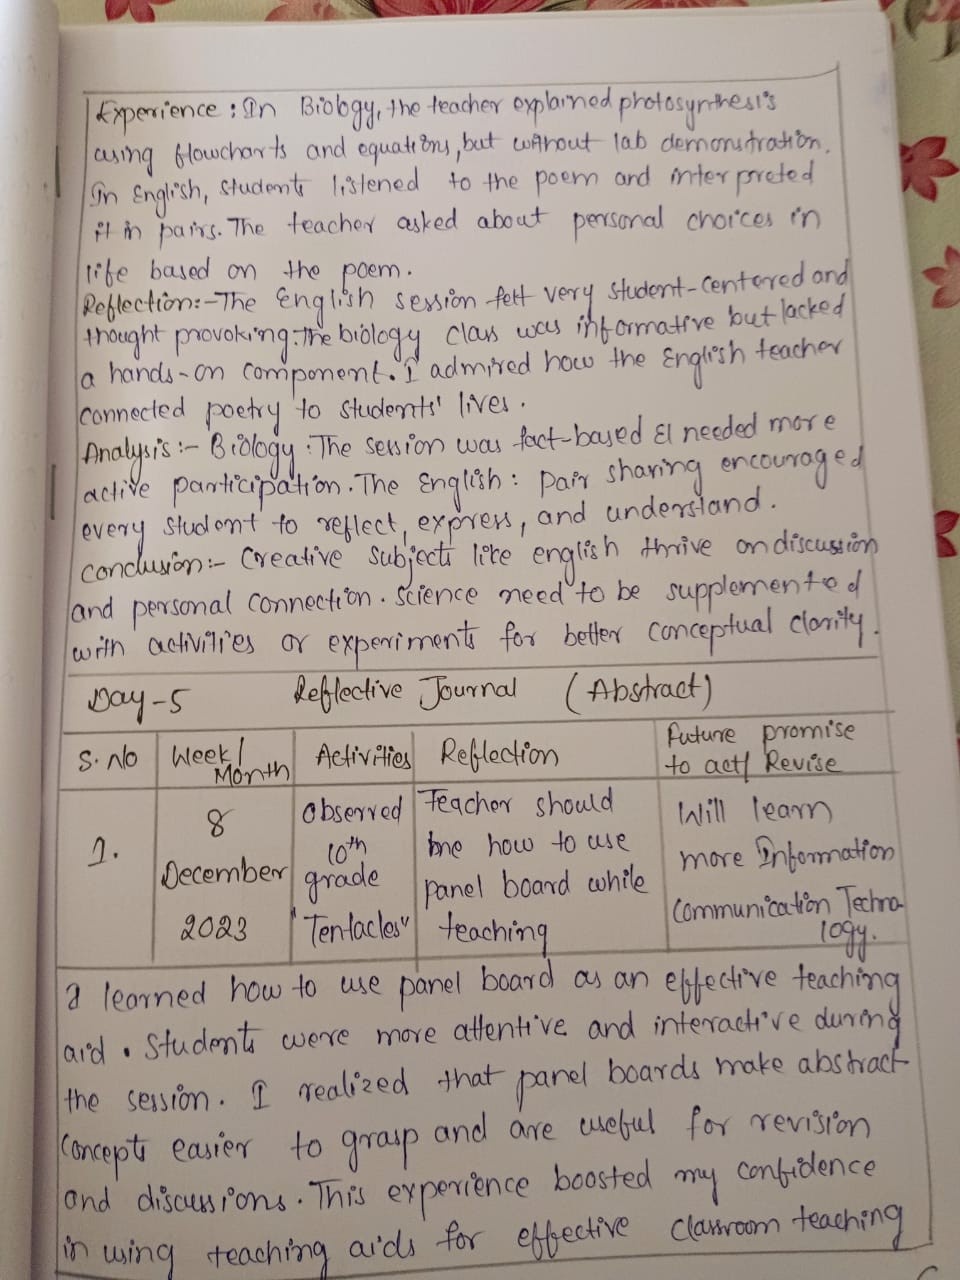 Experience : In Biology, the teacher explained photosynthesis
using flowcharts and equations, but without lab demonstration.
In English, students listened to the poem and interpreted
it in pairs. The teacher asked about personal choices in
life based on the poem.
Reflection:- The English session felt very student-centered and
thought provoking. The biology class was informative but lacked
a hands-on component. I admired how the English teacher
connected poetry to students' lives.
Analysis :- Biology : The session was fact-based & needed more
active participation. The English : Pair sharing encouraged
every student to reflect, express, and understand.
Conclusion :- Creative subjects like english thrive on discussion
and personal connection. Science need to be supplemented
with activities or experiments for better conceptual clarity.
Day-5 Reflective Journal (Abstract)
S.No Week/ Month Activities Reflection Future promise to act/ Revise
1. 8 December 2023
Observed
10th
grade
"Tentacles"
Teacher should
how to use
panel board while
teaching
Will learn
more Information
Communication Techno-
logy.
I learned how to use panel board as an effective teaching
aid. Students were more attentive and interactive during
the session. I realized that panel boards make abstract
concepts easier to grasp and are useful for revision
and discussions. This experience boosted my confidence
in using teaching aids for effective classroom teaching